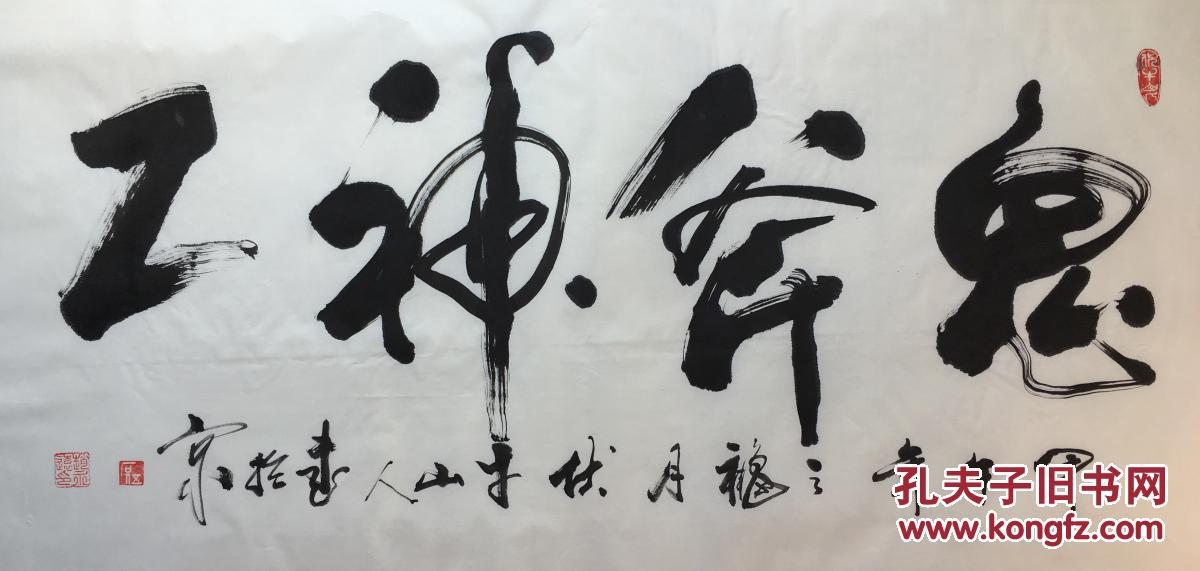 鬼斧神工
甲午年之穐月伏牛山人书於京
孔夫子旧书网
www.kongfz.com